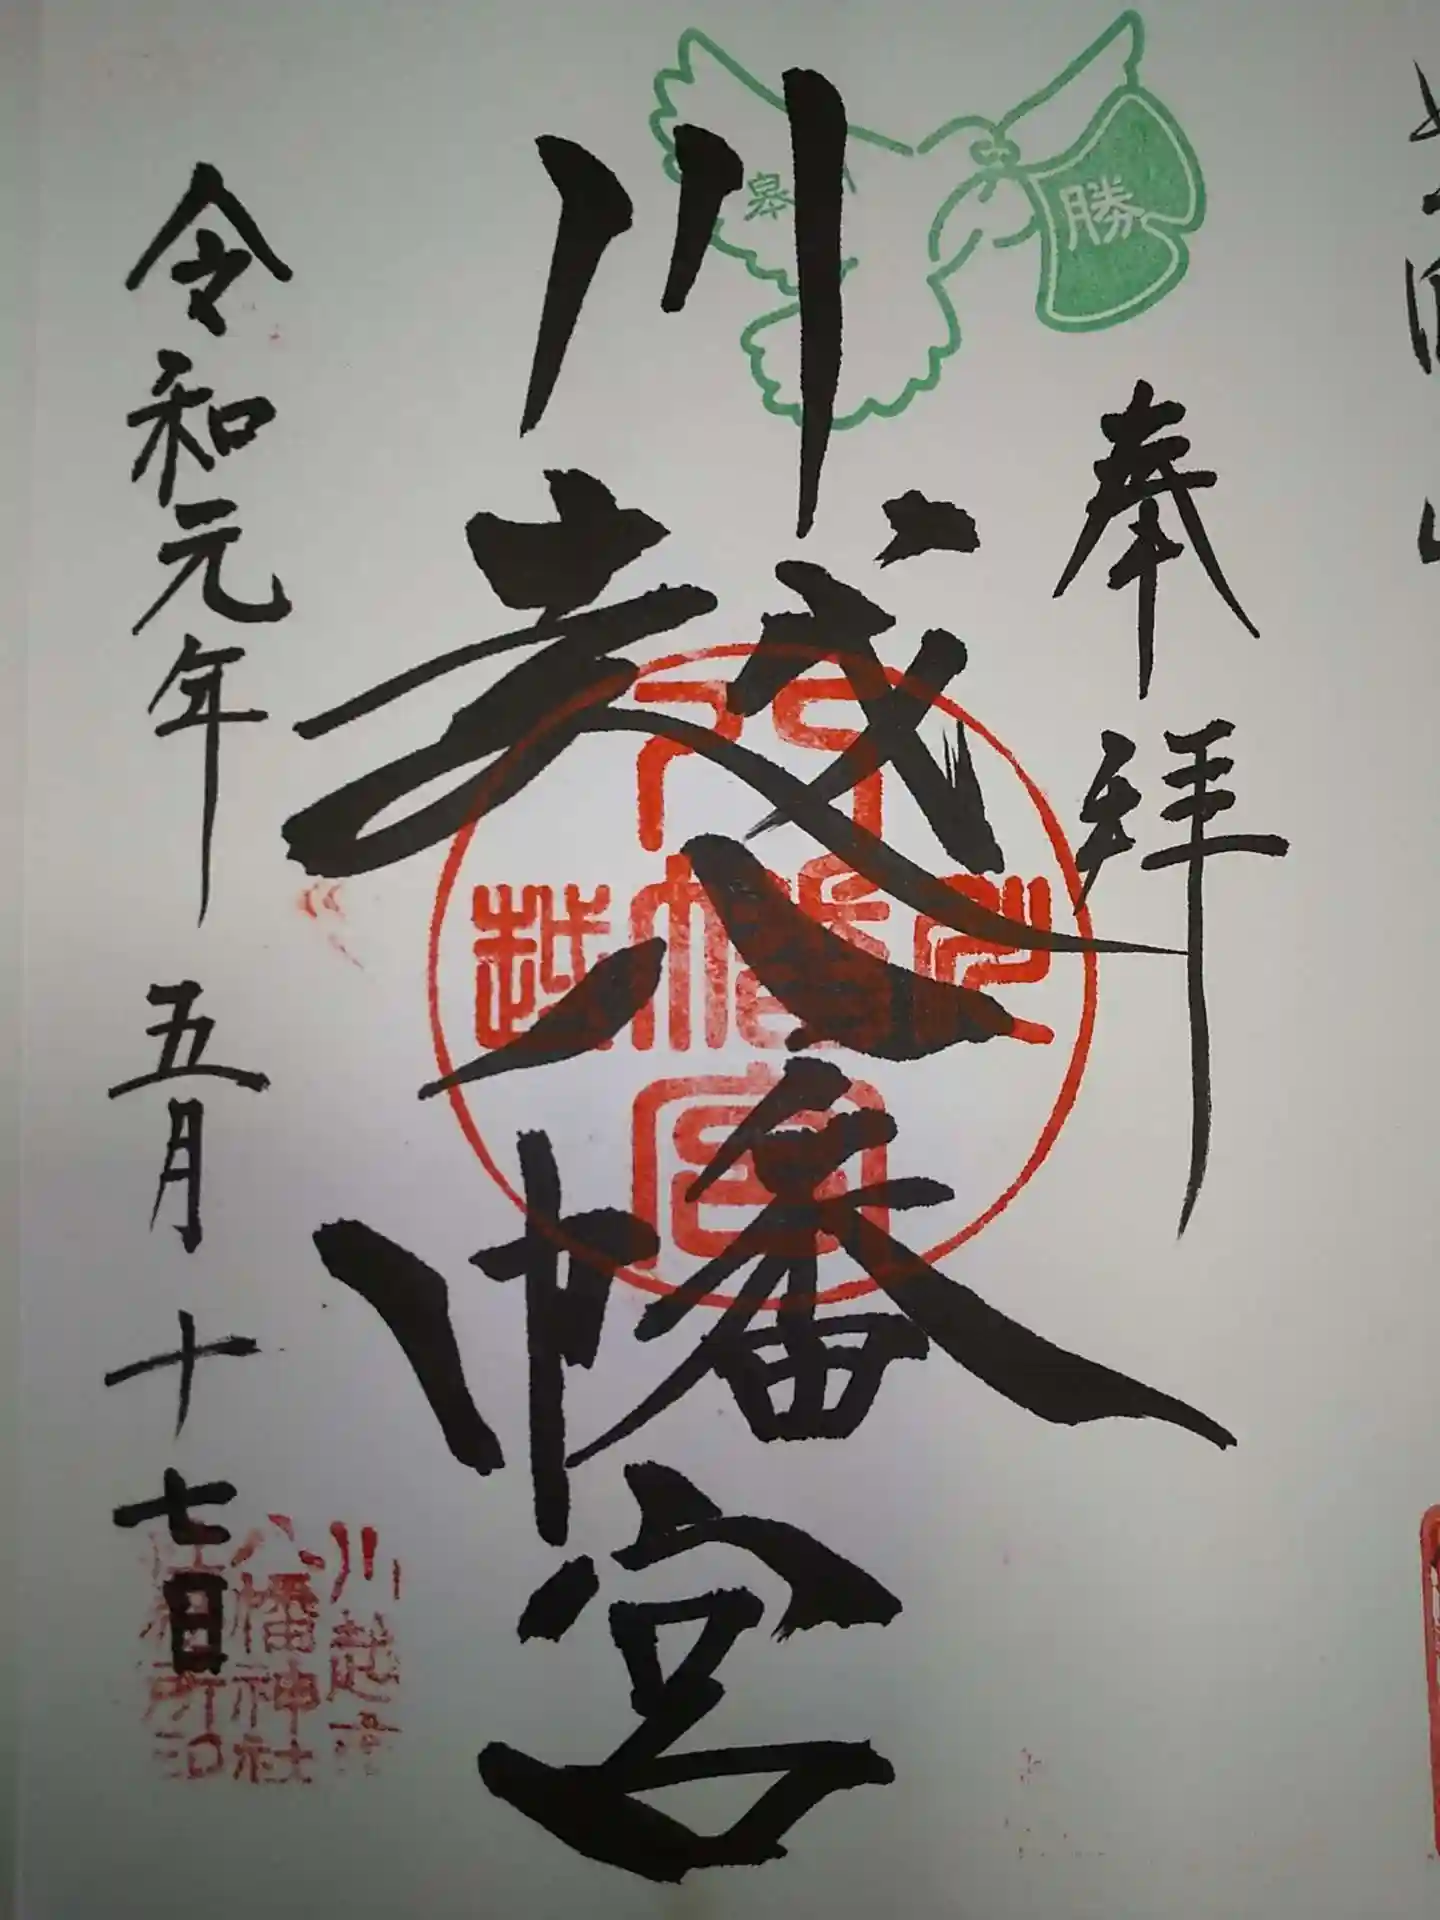 奉拝
勝
皋
川越八幡宮
川越
八幡宮
令和元年 五月十七日
川越市
八幡神社
社務所印